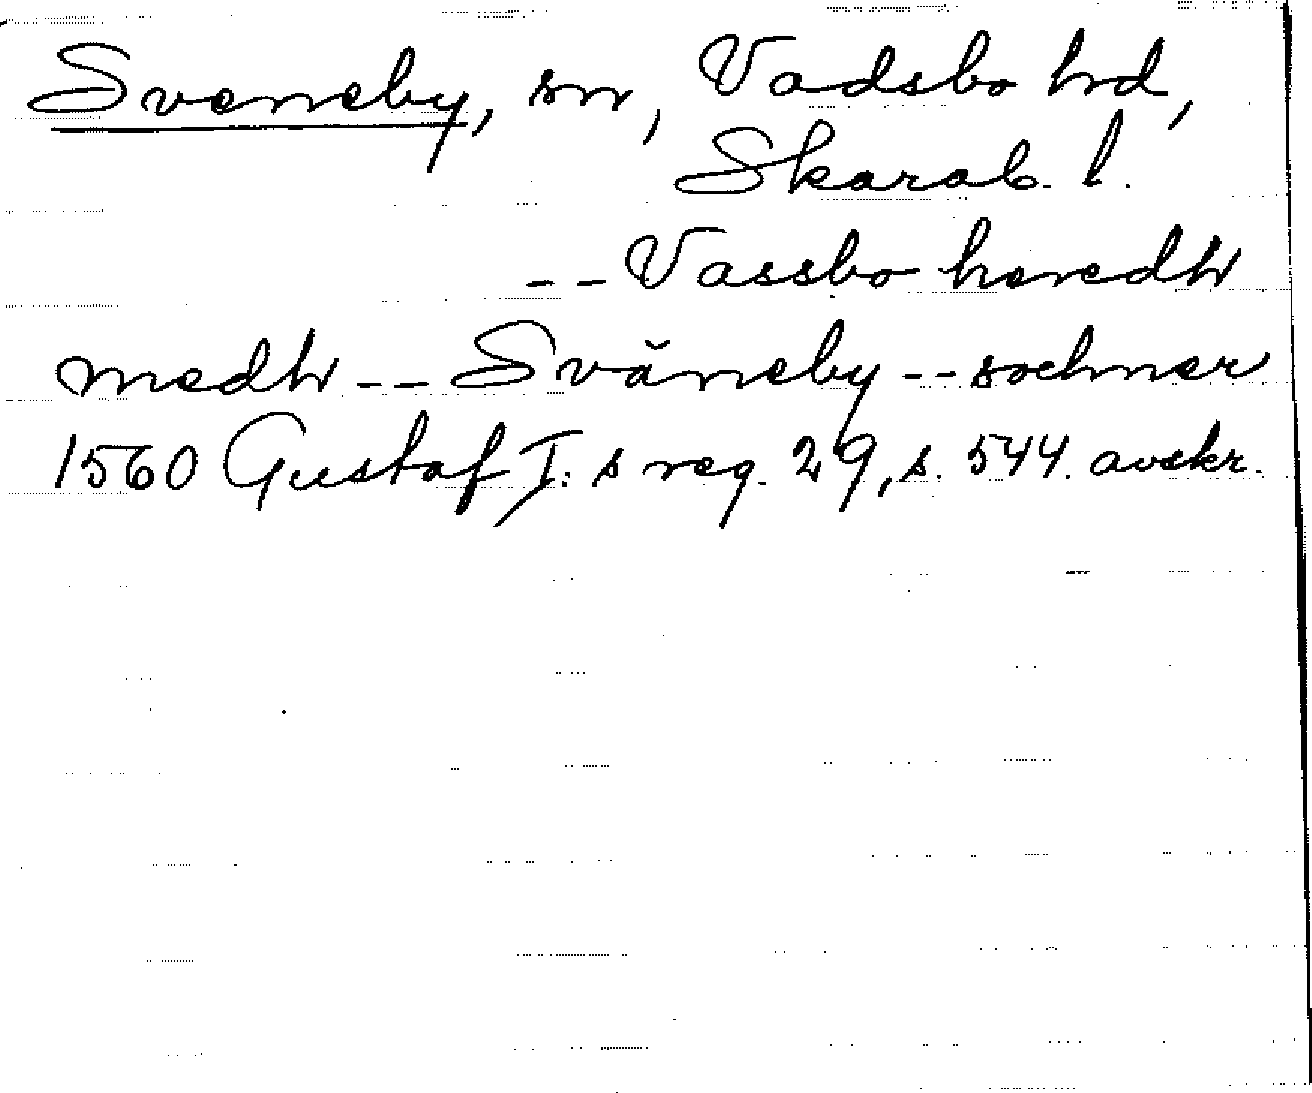 Sveneby, sn, Vadsbo hd,
Skarab. l.
-- Vassbo heredh
medh -- Svăneby -- sochner
1560 Gustaf I:s reg. 29, s. 544. avskr.